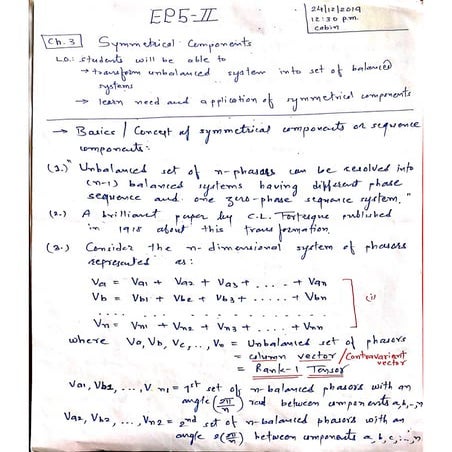 EPS-II
24/12/2019
12:30 p.m.
cabin
Ch. 3 Symmetrical Components
L.O.: students will be able to
→ transform unbalanced system into set of balanced
systems
→ learn need and application of symmetrical components
→ Basics / Concept of symmetrical components or sequence
components:
(1.) "Unbalanced set of n-phasors can be resolved into
(n-1) balanced systems having different phase
sequence and one zero-phase sequence system."
(2.) A brilliant paper by C.L. Fortesque published
in 1918 about this transformation.
(3.) Consider the n-dimensional system of phasors
represented as:
Va = Va1 + Va2 + Va3 + ..... + Van
Vb = Vb1 + Vb2 + Vb3 + ..... + Vbn
.... .... .... .... .... (i)
Vn = Vn1 + Vn2 + Vn3 + .... + Vnn
where Va, Vb, Vc, .., Vn = Unbalanced set of phasors
= column vector / Contravariant vector
= Rank-1 Tensor
Va1, Vb1, ..., Vn1 = 1st set of n-balanced phasors with an
angle (2π/n) rad between components a,b,-,n
Va2, Vb2, ..., Vn2 = 2nd set of n-balanced phasors with an
angle 2(2π/n) between components a,b,c,..,n